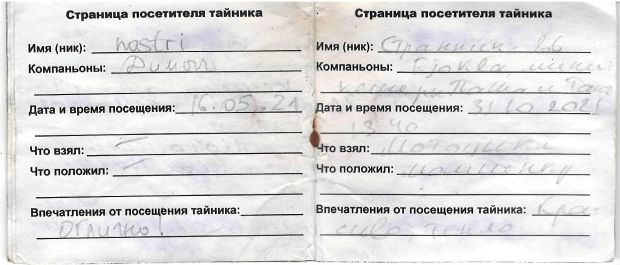 Страница посетителя тайника
Имя (ник): nastri
Компаньоны: Димон
Дата и время посещения: 16.05.21
Что взял: —
Что положил: —
Впечатления от посещения тайника:
Отлично!
Страница посетителя тайника
Имя (ник): Странник
Компаньоны:
Паша и
Дата и время посещения: 31.10.2021
13 40
Что взял:
Что положил: машинку
Впечатления от посещения тайника: Кра-
сиво, тепло